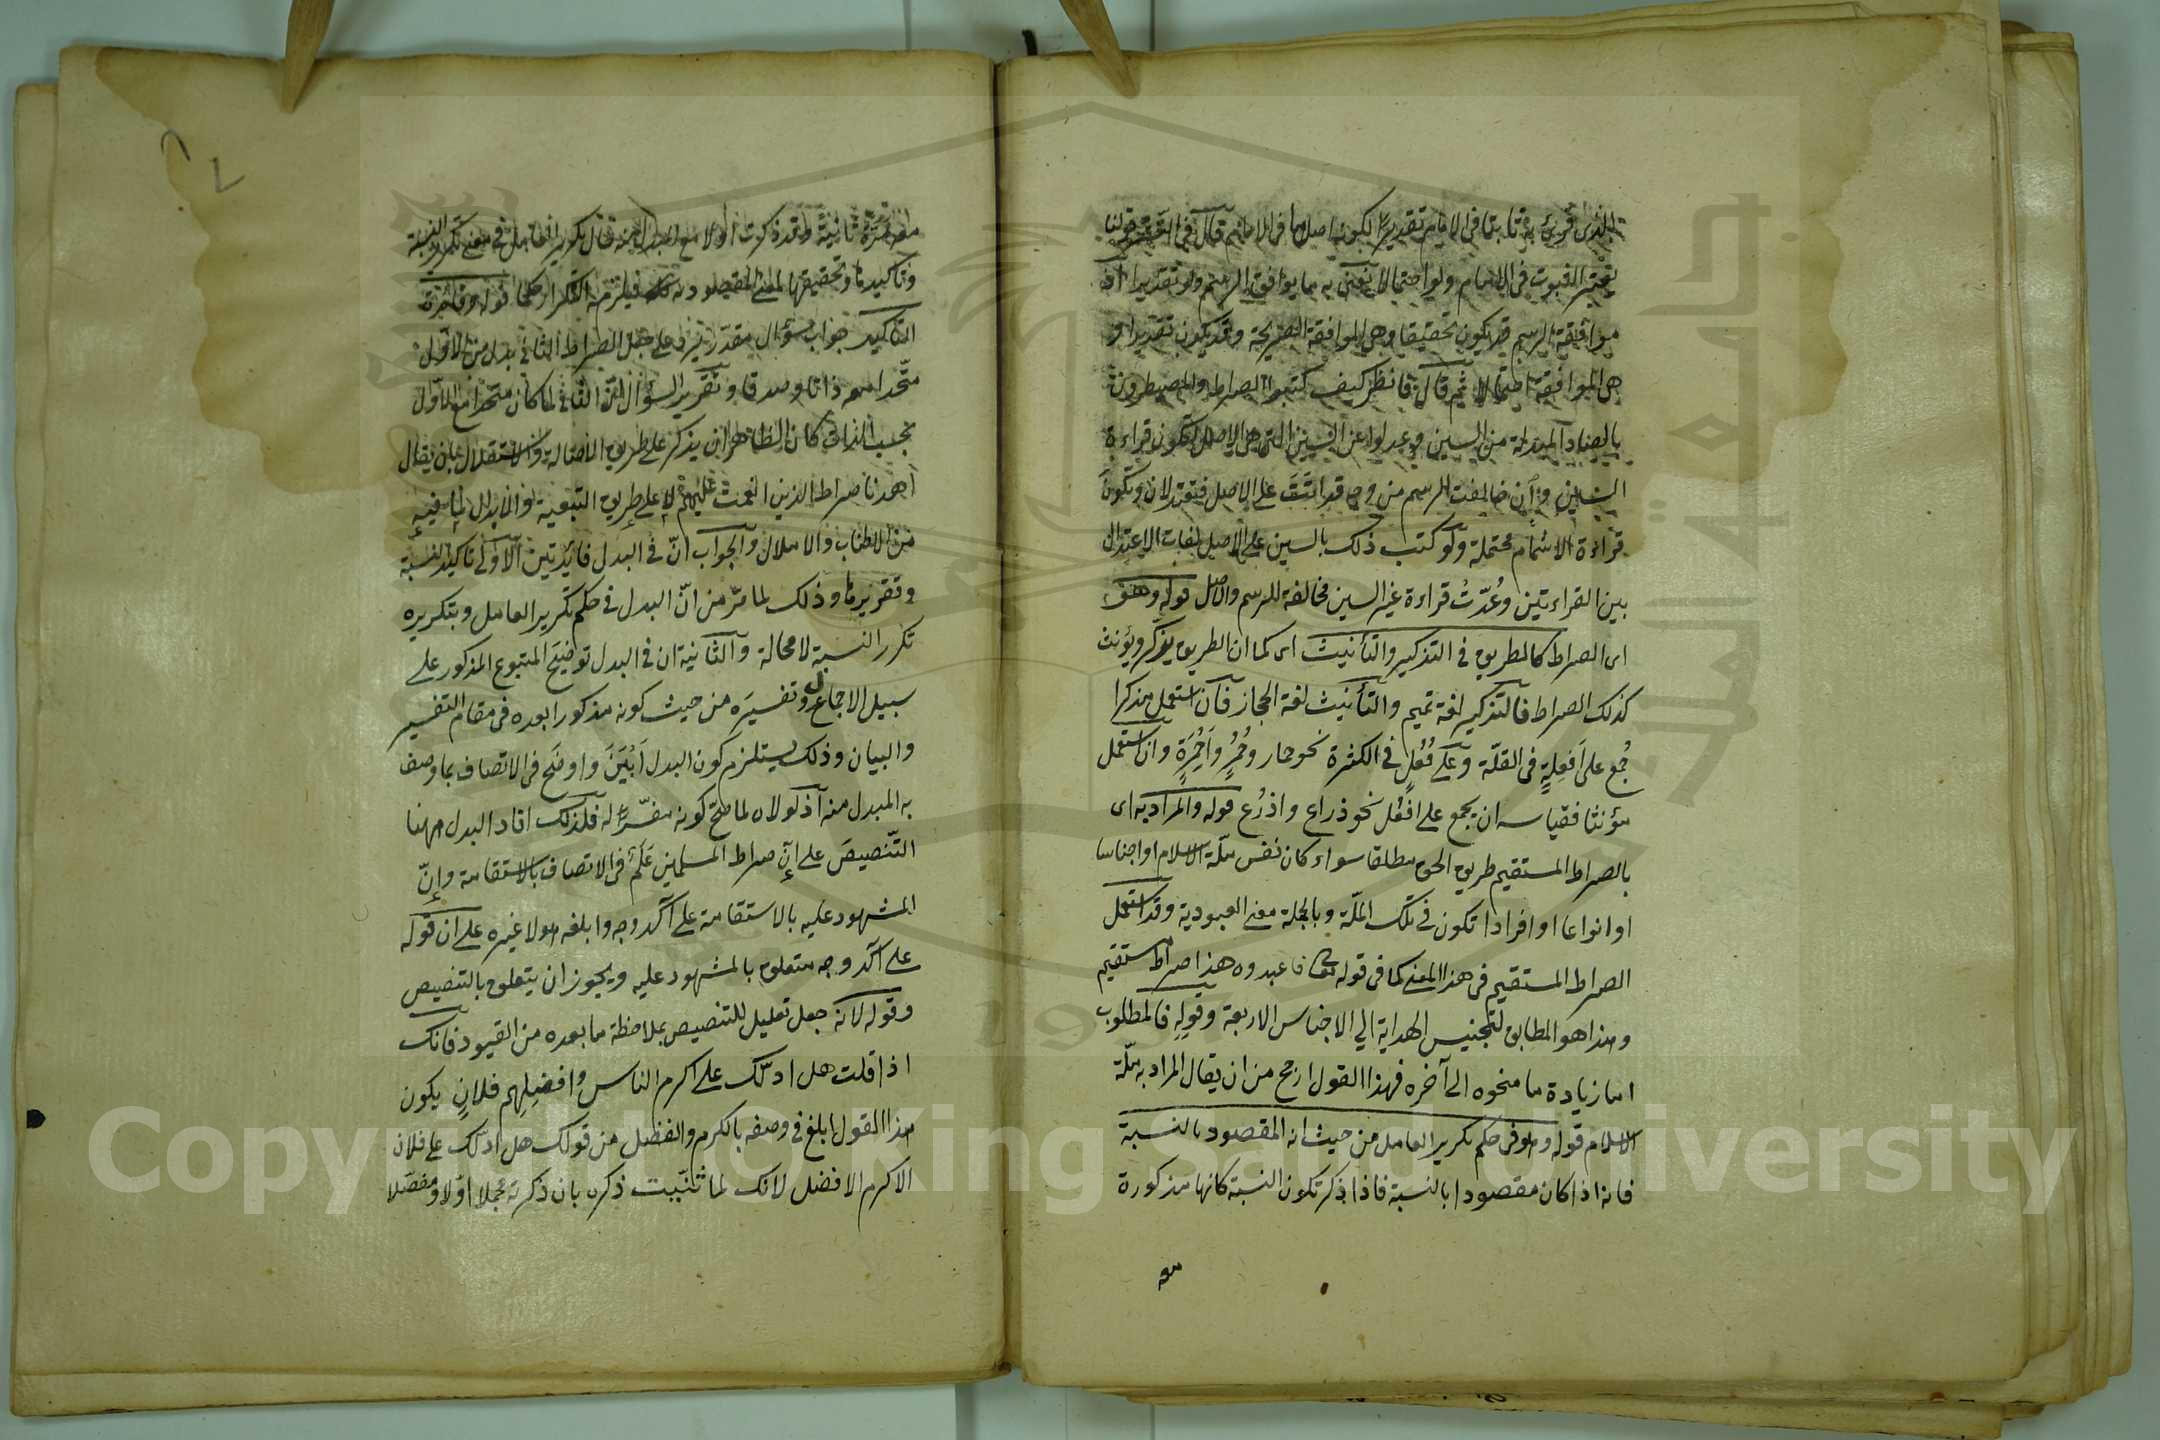 الذي قرئ به ثابتا في الامام تقديرا لكونه اصلها في الامام قال في النشر قولنا
يعتبر الثبوت في الامام ولو احتمالا نعني به ما يوافق الرسم ولو تقديرا اذ
موافقة الرسم قد يكون تحقيقا وهي الموافقة الصريحة وقد يكون تقديرا و
هي الموافقة احتمالا ثم قال فانظر كيف كتبوا الصراط والمصيطرون
بالصاد المبدلة من السين وعدلوا عن السين التي هي الاصل لتكون قراءة
السين وإن خالفت الرسم من وجه قد اتت على الاصل فيعتدلان وتكون
قراءة الاشمام محتملة ولو كتب ذلك بالسين على الاصل لفات الاعتدال
بين القراءتين وعُدّت قراءة غير السين مخالفة للرسم والاصل قوله وهو
اى الصراط كالطريق في التذكير والتأنيث اى كما ان الطريق يذكر ويؤنث
كذلك الصراط فالتذكير لغة تميم والتأنيث لغة الحجاز فان استعمل مذكرا
جُمع على اَفعِلةٍ في القلّة وعلى فُعُلٍ في الكثرة نحو حمار وحُمُرٍ واَحمِرَةٍ وان استعمل
مؤنثا فقياسه ان يجمع على افعُل نحو ذراع واذرُع قوله والمراد به اى
بالصراط المستقيم طريق الحق مطلقا سواء كان نفس ملّة الاسلام او اجناسا
او انواعا او افرادا تكون في تلك الملّة وبالجملة معنى العبودية وقد استعمل
الصراط المستقيم في هذا المعنى كما في قوله تعالى فاعبدوه هذا صراط مستقيم
وهذا هو المطابق لتجنيس الهداية الى الاجناس الاربعة وقوله فالمطلوب
اما زيادة ما منحوه الى آخره فهذا القول ارجح من ان يقال المراد به ملّة
الاسلام قوله وهو في حكم تكرير العامل من حيث انه المقصود بالنسبة
فانه اذا كان مقصودا بالنسبة فاذا ذكر تكون النسبة كانها مذكورة
مرة ثانية وقد ذكرت اولا مع المبدل منه فكان تكرير العامل في معنى تكرير النسبة
وتاكيدها وتحقيقها لمعنى المقصود منه فيلزم التكرار حكما قوله وفائدته
التاكيد جواب سؤال مقدر يرد على جعل الصراط الثاني بدل من الاول
متّحدا معه ذاتا وصدقا وتقرير السؤال ان الثاني لما كان متحدا مع الاوّل
بحسب الذات كان الظاهر ان يذكر على طريق الاصالة والاستقلال بان يقال
اهدنا صراط الذين انعمت عليهم لا على طريق التبعية والابدال لما فيه
من الاطناب والاملال والجواب انّ في البدل فائدتين الاولى تاكيد النسبة
وتقريرها وذلك لما مرّ من انّ البدل في حكم تكرير العامل وبتكريره
تكرر النسبة لا محالة والثانية ان في البدل توضيح المتبوع المذكور على
سبيل الاجمال وتفسيرَه من حيث كونه مذكورا بعده في مقام التفسير
والبيان وذلك يستلزم كون البدل اَبْيَنَ واوضح في الاتصاف بما وصف
به المبدل منه اذ لولاه لما صحّ كونه مفسّرا له فلذلك افاد البدل ههنا
التّنصيصَ على انّ صراط المسلمين عَلَمٌ في الاتصاف بالاستقامة وإنّ
المشهود عليه بالاستقامة على آكد وجه وابلغه هو لا غيره على ان قوله
على آكد وجه متعلق بالمشهود عليه ويجوز ان يتعلق بالتنصيص
وقوله لانه جعل تعليل للتنصيص بملاحظة ما بعده من القيود فانك
اذا قلت هل ادلّك على اكرم الناس وافضلِهم فلانٍ يكون
هذا القول ابلغ في وصفه بالكرم والفضل من قولك هل ادلّك على فلان
الاكرم الافضل لانك لما ثنّيت ذكره بان ذكرته مجملا اوّلا ومفصّلا
Copyright © King Saud University